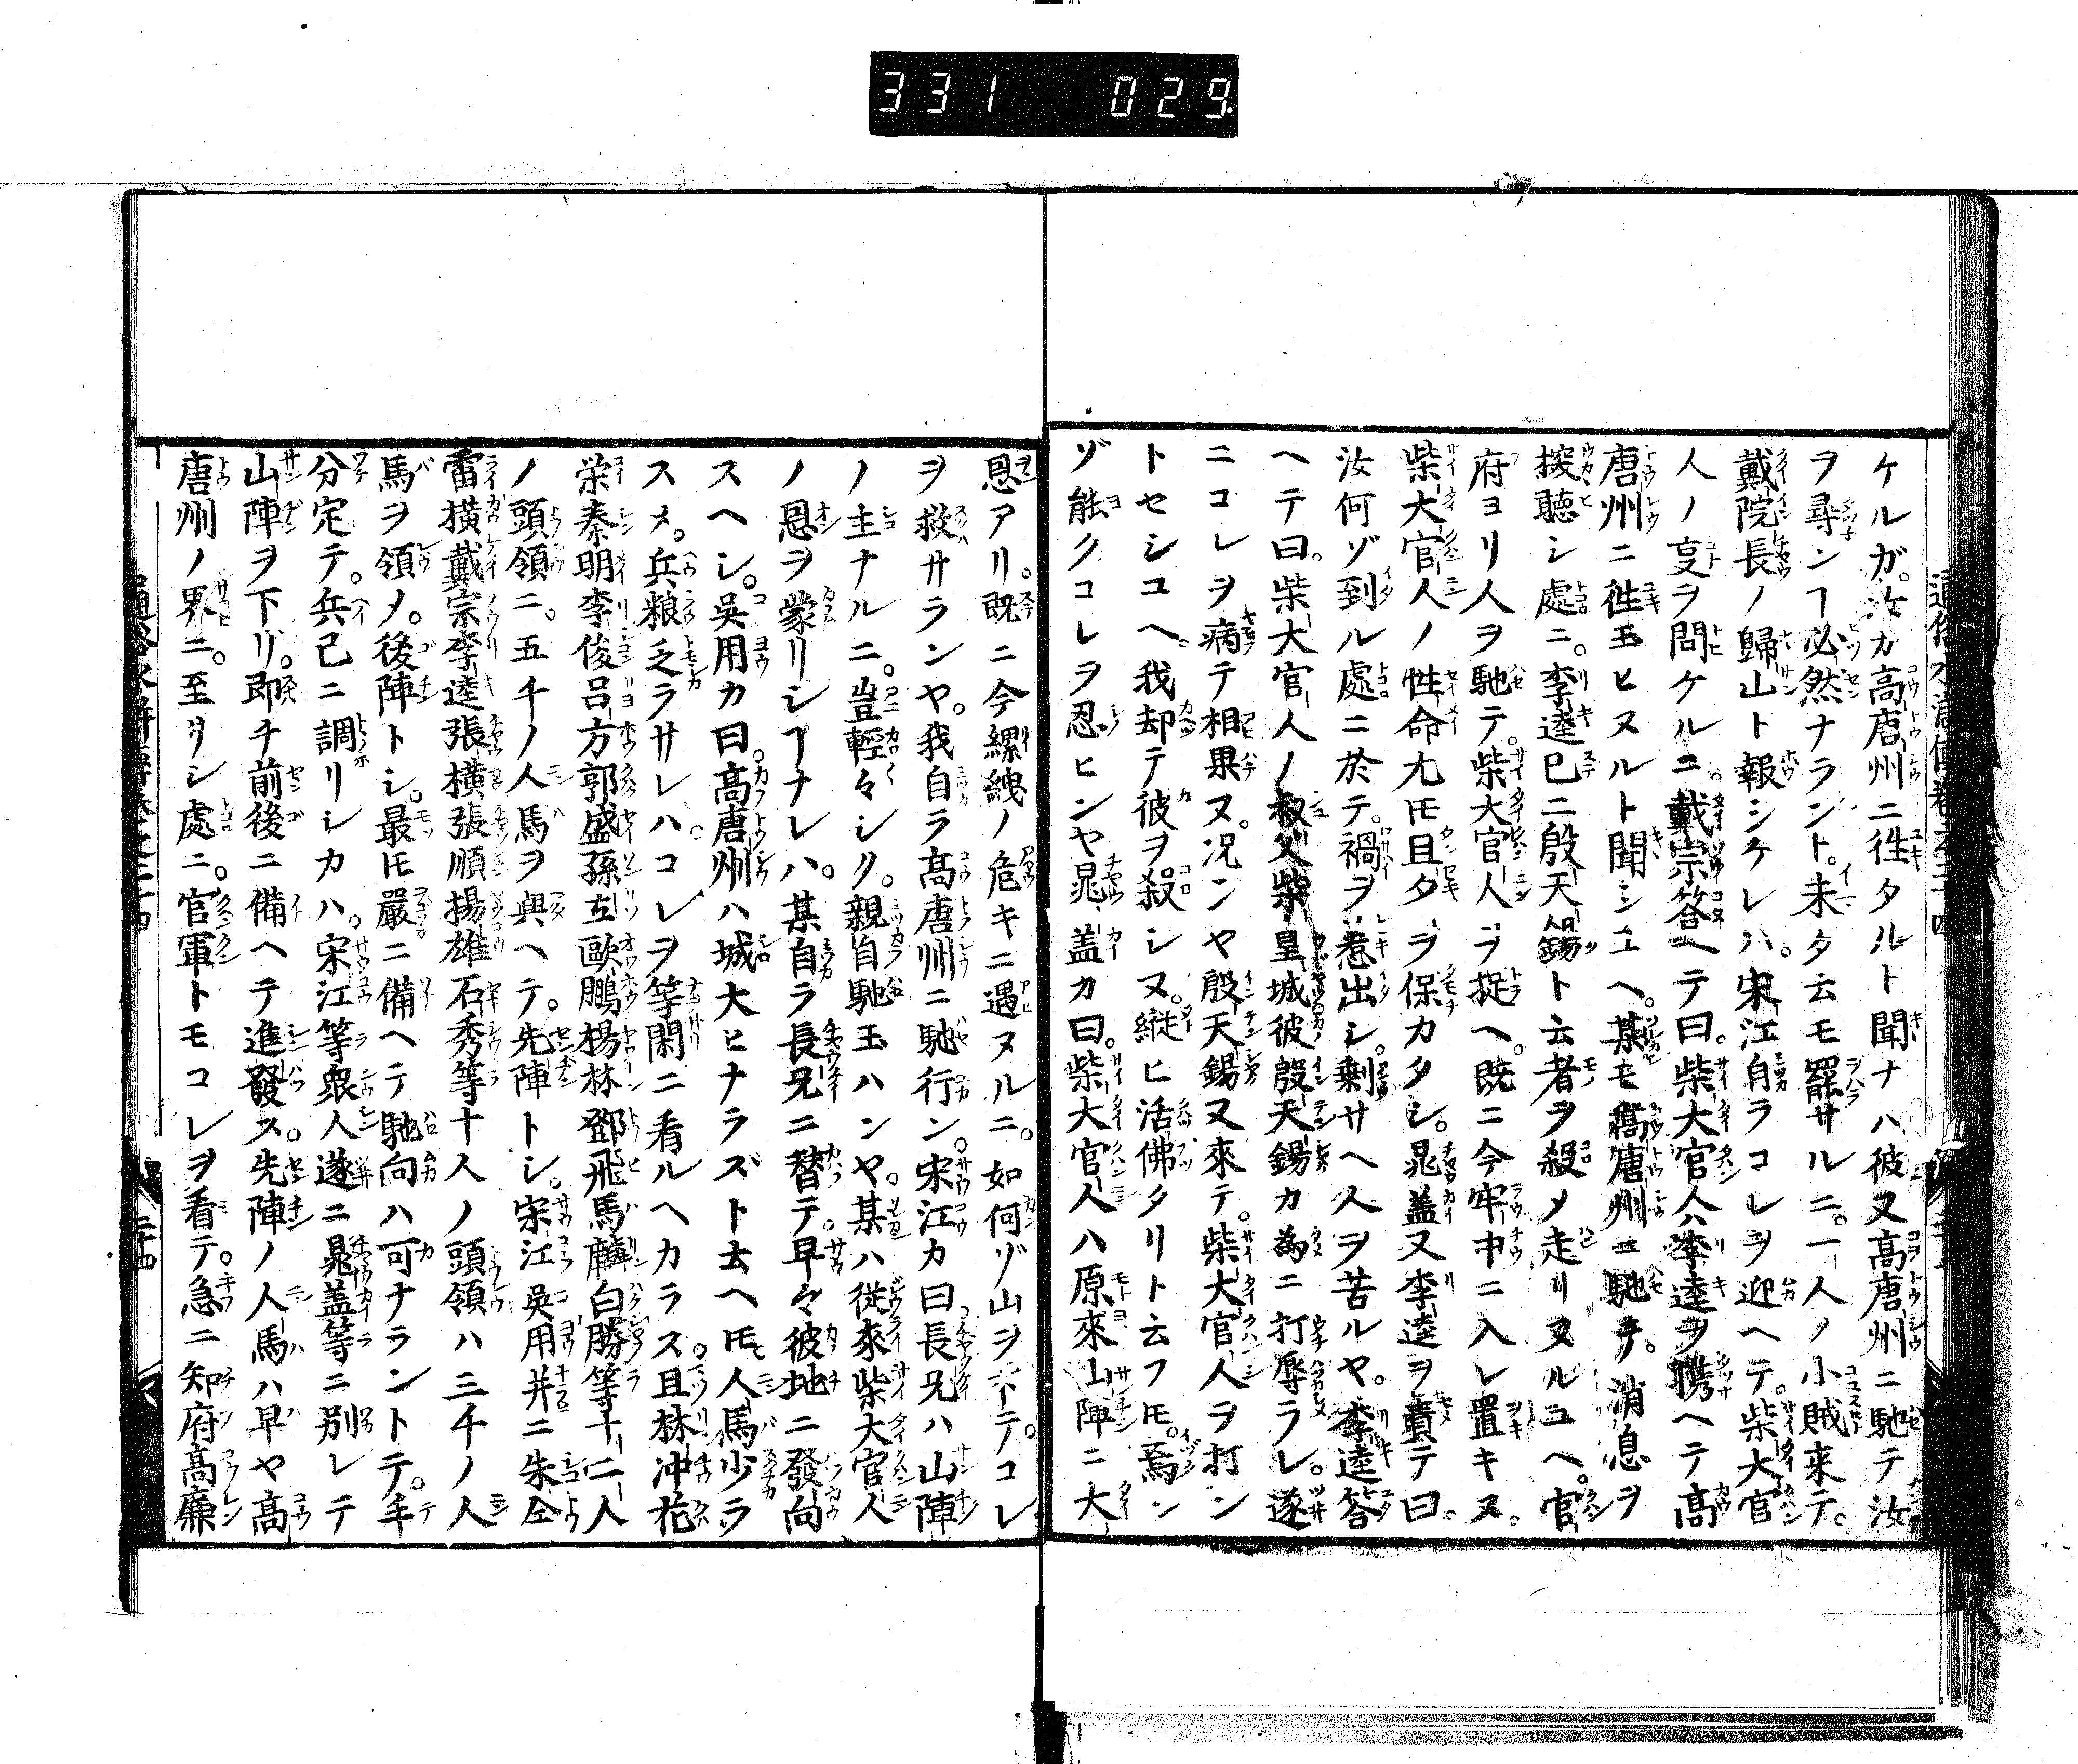 331 029
ケルガ。汝カ高唐州ニ徃タルト聞ナハ彼又高唐州ニ馳テ汝
ヲ尋ンヿ必然ナラント。未タ云モ罷サルニ。一人ノ小賊来テ。
戴院長ノ歸山ト報シケレハ。宋江自ラコレヲ迎ヘテ。柴大官
人ノ㕝ヲ問ケルニ。戴宗答ヘテ曰。柴大官人ハ李逵ヲ携ヘテ高
唐州ニ徃玉ヒヌルト聞シユヘ。某モ高唐州ニ馳テ。消息ヲ
探聽シ處ニ。李逵已ニ殷天錫ト云者ヲ殺メ走リヌルユヘ。官
府ヨリ人ヲ馳テ。柴大官人ヲ捉ヘ。既ニ今牢中ニ入レ置キヌ。
柴大官人ノ性命尤𪜈且タヲ保カタシ。晁盖又李逵ヲ責テ曰。
汝何ゾ到ル處ニ於テ。禍ヲ惹出シ。剰サヘ人ヲ苦ルヤ。李逵答
ヘテ曰。柴大官人ノ叔父柴皇城彼殷天錫カ為ニ打辱ラレ。遂
ニコレヲ病テ相果ヌ。况ンヤ殷天錫又來テ。柴大官人ヲ打ン
トセシユヘ。我却テ彼ヲ殺シヌ。縦ヒ活佛タリト云フ𪜈。焉ン
ゾ能クコレヲ忍ヒンヤ晁盖カ曰。柴大官人ハ原來山陣ニ大
恩アリ。既ニ今縲絏ノ危キニ遇ヌルニ。如何ゾ山ヲ下テ。コレ
ヲ救サランヤ。我自ラ高唐州ニ馳行ン。宋江カ曰長兄ハ山陣
ノ主ナルニ。豈輕々シク。親自馳玉ハンヤ。某ハ従來柴大官人
ノ恩ヲ蒙リシヿナレハ。某自ラ長兄ニ替テ。早々彼地ニ發向
スヘシ。吳用カ曰。高唐州ハ城大ヒナラズト云ヘ𪜈人馬少ラ
スメ。兵粮乏ラサレハコレヲ等閑ニ看ルヘカラス。且林冲花
栄秦明李俊呂方郭盛孫立歐鵬楊林鄧飛馬麟白勝等十二人
ノ頭領ニ。五千ノ人馬ヲ與ヘテ。先陣トシ。宋江吳用并ニ朱仝
雷横戴宗李逵張横張順揚雄石秀等十人ノ頭領ハ三千ノ人
馬ヲ領メ。後陣トシ。最𪜈嚴ニ備ヘテ馳向ハ可ナラントテ。手
分定テ。兵已ニ調リシカハ。宋江等衆人遂ニ晁盖等ニ別レテ
山陣ヲ下リ。即チ前後ニ備ヘテ進發ス。先陣ノ人馬ハ早ヤ高
唐州ノ界ニ。至リシ處ニ。官軍トモコレヲ看テ。急ニ知府高廉